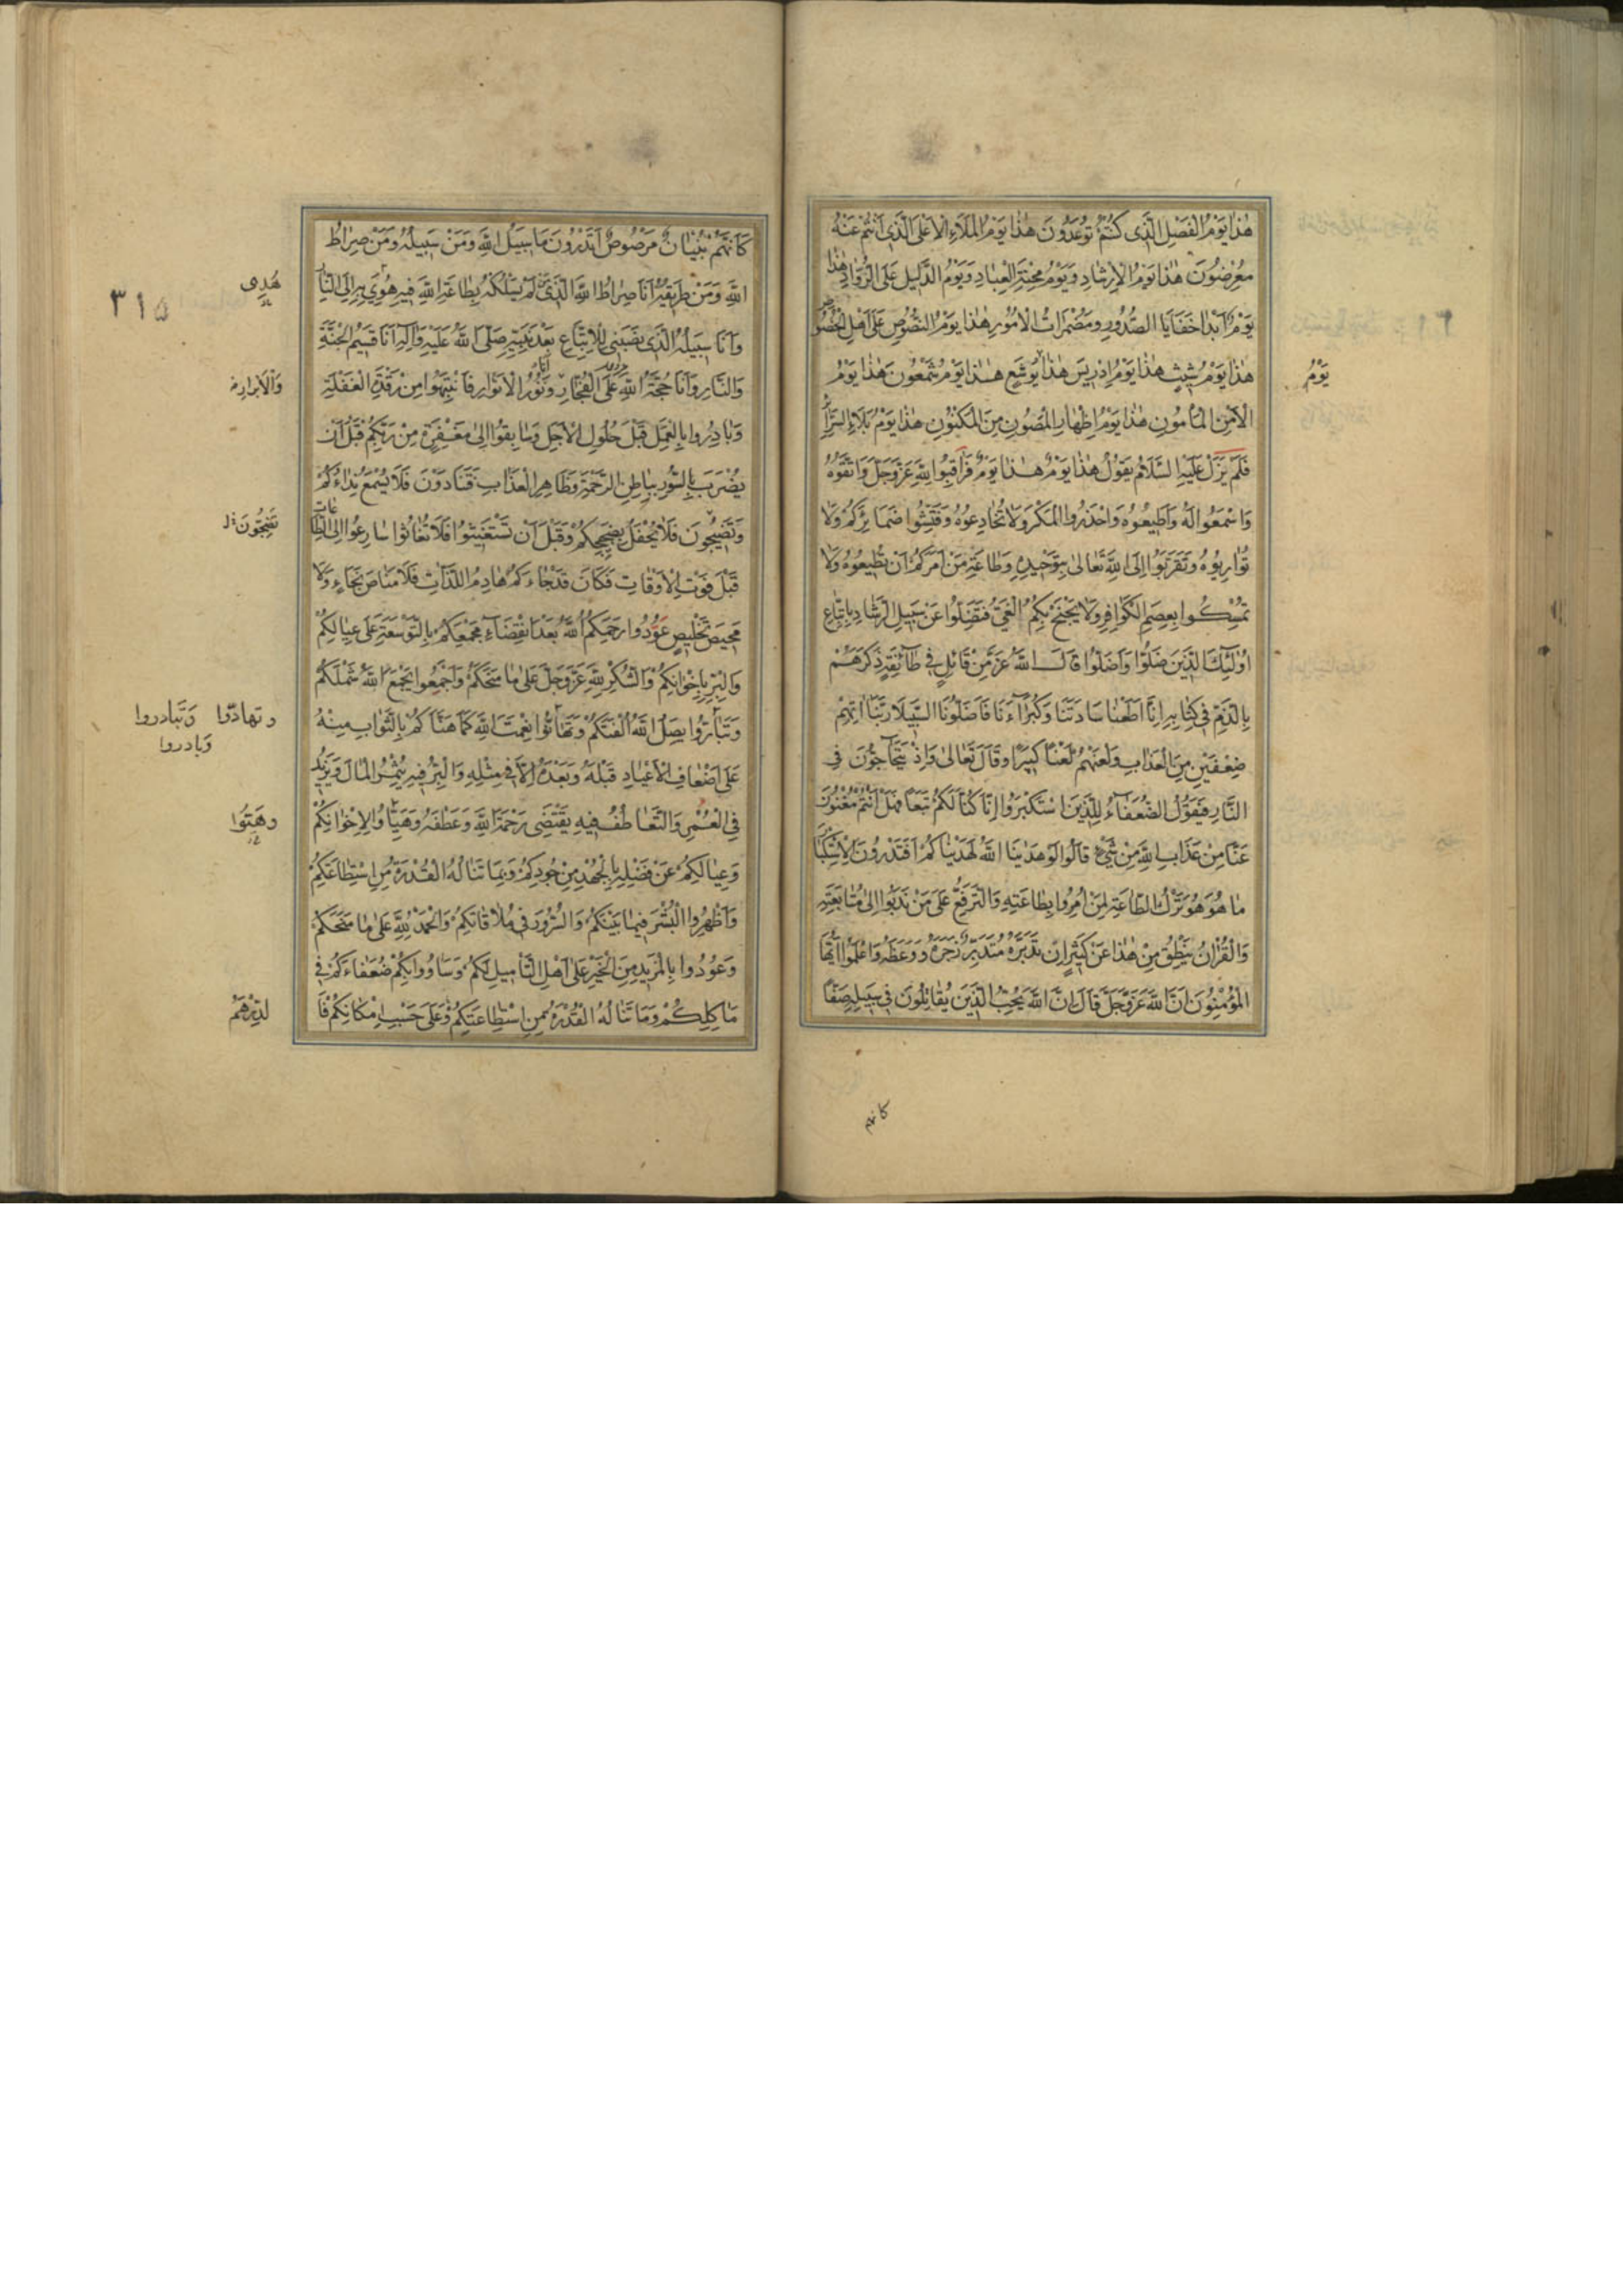 هٰذا يَوْمُ الْفَصْلِ الَّذى كُنْتُمْ تُوعَدُونَ هٰذا يَوْمُ الْمَلَاءِ الْاَعْلَى الَّذى اَنْتُمْ عَنْهُ
مُعْرِضُونَ هٰذا يَوْمُ الْاِرْشادِ وَيَوْمُ مِحْنَةِ الْعِبادِ وَيَوْمُ الدَّليلِ عَلَى الرُّوّادِ هٰذا
يَوْمُ اَبْدا خَفايَا الصُّدُورِ وَمُضْمَراتُ الْاُمُورِ هٰذا يَوْمُ النُّصُوصِ عَلى اَهْلِ الْخُصُوصِ
يَوْمُ
هٰذا يَوْمُ شيثٍ هٰذا يَوْمُ اِدْريسَ هٰذا يُوشَعَ هٰذا يَوْمُ شَمْعُونَ هٰذا يَوْمُ
الْاَمْنِ الْمَأْمُونِ هٰذا يَوْمُ اِظْهارِ الْمَصُونِ مِنَ الْمَكْنُونِ هٰذا يَوْمُ بَلاءِ السَّرائِرِ
فَلَمْ يَزَلْ عَلَيْهِ السَّلامُ يَقُولُ هٰذا يَوْمُ هٰذا يَوْمُ فَراقِبُوا اللهَ عَزَّ وَجَلَّ وَاتَّقُوهُ
وَاسْمَعُوا لَهُ وَاَطيعُوهُ وَاحْذَرُوا الْمَكْرَ وَلا تُخادِعُوهُ وَفَتِّشُوا ضَمائِرَكُمْ وَلا
تُوارِبُوهُ وَتَقَرَّبُوا اِلَى اللهِ تَعالى بِتَوْحيدِهِ وَطاعَةِ مَنْ اَمَرَكُمْ اَنْ تُطيعُوهُ وَلا
تُمْسِكُوا بِعِصَمِ الْكَوافِرِ وَلا يَجْنَحْ بِكُمُ الْغَىُّ فَتَضِلُّوا عَنْ سَبيلِ الرَّشادِ بِاتِّباعِ
اُولٰئِكَ الَّذينَ ضَلُّوا وَاَضَلُّوا قالَ اللهُ عَزَّ مِنْ قائِلٍ فى طائِفَةٍ ذَكَرَهُمْ
بِالذَّمِّ فى كِتابِهِ اِنّا اَطَعْنا سادَتَنا وَكُبَراءَنا فَاَضَلُّونَا السَّبيلَا رَبَّنا اٰتِهِمْ
ضِعْفَيْنِ مِنَ الْعَذابِ وَالْعَنْهُمْ لَعْنًا كَبيرًا وَقالَ تَعالى وَاِذْ يَتَحاجُّونَ فِى
النّارِ فَيَقُولُ الضُّعَفاءُ لِلَّذينَ اسْتَكْبَرُوا اِنّا كُنّا لَكُمْ تَبَعًا فَهَلْ اَنْتُمْ مُغْنُونَ
عَنّا مِنْ عَذابِ اللهِ مِنْ شَىْءٍ قالُوا لَوْ هَدينَا اللهُ لَهَدَيْناكُمْ اَفَتَدْرُونَ الْاِسْتِكْبارَ
ما هُوَ هُوَ تَرْكُ الطّاعَةِ لِمَنْ اُمِرُوا بِطاعَتِهِ وَالتَّرَفُّعُ عَلى مَنْ نُدِبُوا اِلى مُتابَعَتِهِ
وَالْقُرْاٰنُ يَنْطِقُ مِنْ هٰذا عَنْ كَثيرٍ اِنْ تَدَبَّرَهُ مُتَدَبِّرٌ زَجَرَهُ وَوَعَظَهُ وَاعْلَمُوا اَيُّهَا
الْمُؤْمِنُونَ اَنَّ اللهَ عَزَّ وَجَلَّ قالَ اِنَّ اللهَ يُحِبُّ الَّذينَ يُقاتِلُونَ فى سَبيلِهِ صَفًّا
كانهم
كَاَنَّهُمْ بُنْيانٌ مَرْصُوصٌ اَتَدْرُونَ ما سَبيلُ اللهِ وَمَنْ سَبيلُهُ وَمَنْ صِراطُ
٣١٥
هُدِى
اللهِ وَمَنْ طَريقُهُ اَنَا صِراطُ اللهِ الَّذى مَنْ لَمْ يَسْلُكْهُ بِطاعَةِ اللهِ فيهِ هُوِىَ بِهِ اِلَى النّارِ
وَاَنَا سَبيلُهُ الَّذى نَصَبَنى لِلْاِتِّباعِ بَعْدَ نَبِيِّهِ صَلَّى اللهُ عَلَيْهِ وَاٰلِهِ اَنَا قَسيمُ الْجَنَّةِ
وَالْاَبْرارِ
وَالنّارِ وَاَنَا حُجَّةُ اللهِ عَلَى الْفُجّارِ وَنُورُ الْاَنْوارِ فَانْتَبِهُوا مِنْ رَقْدَةِ الْغَفْلَةِ
وَبادِرُوا بِالْعَمَلِ قَبْلَ حُلُولِ الْاَجَلِ وَسابِقُوا اِلى مَغْفِرَةٍ مِنْ رَبِّكُمْ قَبْلَ اَنْ
يُضْرَبَ بِالسُّورِ بِباطِنِ الرَّحْمَةِ وَظاهِرِ الْعَذابِ فَتُنادَوْنَ فَلا يُسْمَعُ نِداءُكُمْ
تَضِجُّونَ
وَتَضيجُونَ فَلا يُحْفَلُ بِضَجيجِكُمْ وَقَبْلَ اَنْ تَسْتَغيثُوا فَلا تُغاثُوا سارِعُوا اِلَى الطّاعاتِ
قَبْلَ فَوْتِ الْاَوْقاتِ فَكَانَ قَدْ جاءَكُمْ هادِمُ اللَّذّاتِ فَلا مَناصَ نَجاءٍ وَلا
مَحيصَ تَخْليصٍ عُودُوا رَحِمَكُمُ اللهُ بَعْدَ انْقِضاءِ مَجْمَعِكُمْ بِالتَّوْسِعَةِ عَلى عِيالِكُمْ
وَالْبِرِّ بِاِخْوانِكُمْ وَالشُّكْرِ للهِ عَزَّ وَجَلَّ عَلى ما مَنَحَكُمْ وَاجْمَعُوا يَجْمَعِ اللهُ شَمْلَكُمْ
وتهادّوا وَتَبادروا
وَبادروا
وَتَبارُّوا يَصِلِ اللهُ اُلْفَتَكُمْ وَتَهانَؤُا نِعْمَتَ اللهِ كَما هَنَّاَكُمْ بِالثَّوابِ مِنْهُ
عَلى اَضْعافِ الْاَعْيادِ قَبْلَهُ وَبَعْدَهُ اِلّا فى مِثْلِهِ وَالْبِرُّ فيهِ يُثْمِرُ الْمالَ وَيَزيدُ
وهَيِّئُوا
فِى الْعُمْرِ وَالتَّعاطُفُ فيهِ يَقْتَضى رَحْمَةَ اللهِ وَعَطْفَهُ وَهَيِّاُوا لِاِخْوانِكُمْ
وَعِيالِكُمْ عَنْ فَضْلِهِ بِالْجُهْدِ مِنْ جُودِكُمْ وَبِما تَنالُهُ الْقُدْرَةُ مِنِ اسْتِطاعَتِكُمْ
وَاَظْهِرُوا الْبُشْرَ فيما بَيْنَكُمْ وَالسُّرُورَ فى مُلاقاتِكُمْ وَالْحَمْدُ للهِ عَلى ما مَنَحَكُمْ
وَعُودُوا بِالْمَزيدِ مِنَ الْخَيْرِ عَلى اَهْلِ التَّاْميلِ لَكُمْ وَساوُوا بِكُمْ ضُعَفاءَكُمْ فى
مَاٰكِلِكُمْ وَما تَنالُهُ الْقُدْرَةُ مِنِ اسْتِطاعَتِكُمْ وَعَلى حَسَبِ اِمْكانِكُمْ فَا